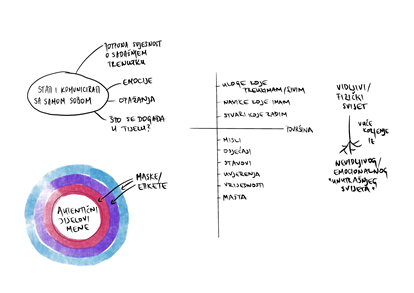 POTPUNA SVJESNOST
O SADAŠNJEM
TRENUTKU
STATI I KOMUNICIRATI
SA SAMOM SOBOM
EMOCIJE
OPAŽANJA
ŠTO SE DOGAĐA
U TIJELU?
MASKE/
ETIKETE
AUTENTIČNI
DIJELOVI
MENE
ULOGE KOJE
TRENIRAM/ŽIVIM
NAVIKE KOJE IMAM
STVARI KOJE RADIM
POVRŠINA
MISLI
OSJEĆAJI
STAVOVI
UVJERENJA
VRIJEDNOSTI
MAŠTA
VIDLJIVI/
FIZIČKI
SVIJET
VUČE
KORIJENJE
IZ
NEVIDLJIVOG/
EMOCIONALNOG
"UNUTRAŠNJEG
SVIJETA"